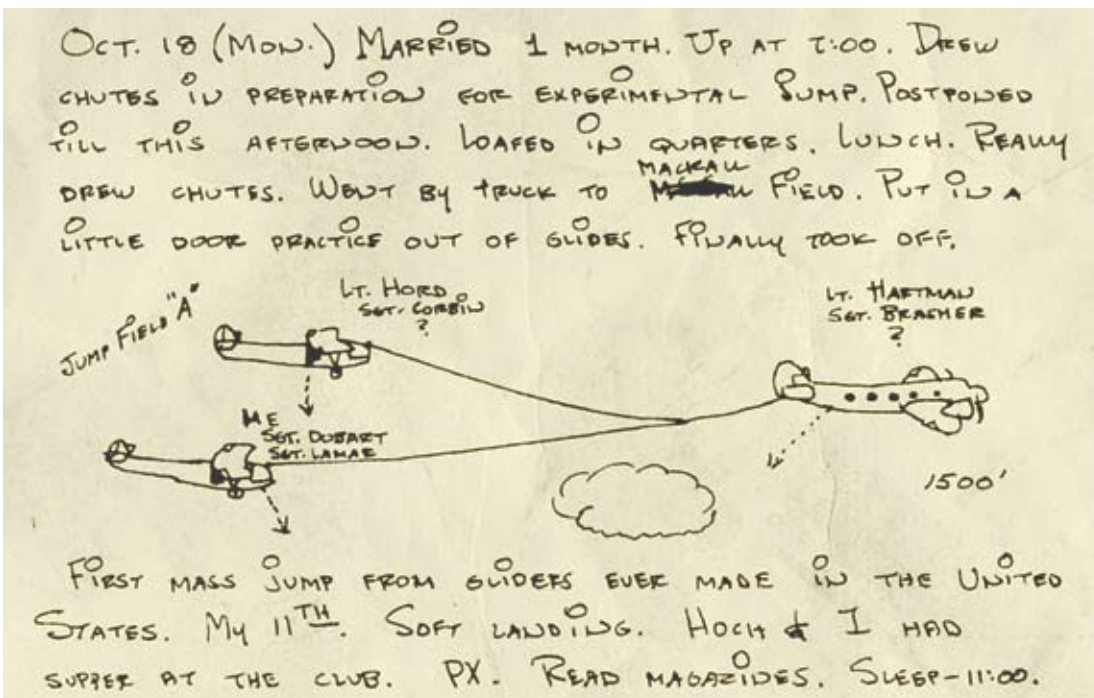 Oct. 18 (Mon.) Married 1 month. Up at 7:00. Drew
chutes in preparation for experimental jump. Postponed
till this afternoon. Loafed in quarters. Lunch. Really
Mackall
drew chutes. Went by truck to Field. Put in a
little door practice out of glides. Finally took off.
Jump Field "A"
Lt. Hord
Sgt. Corbin
?
Lt. Hartman
Sgt. Brasher
?
Me
Sgt. Dobart
Sgt. Lamar
1500'
First mass jump from gliders ever made in the United
States. My 11th. Soft landing. Hoch & I had
supper at the club. PX. Read magazines. Sleep-11:00.